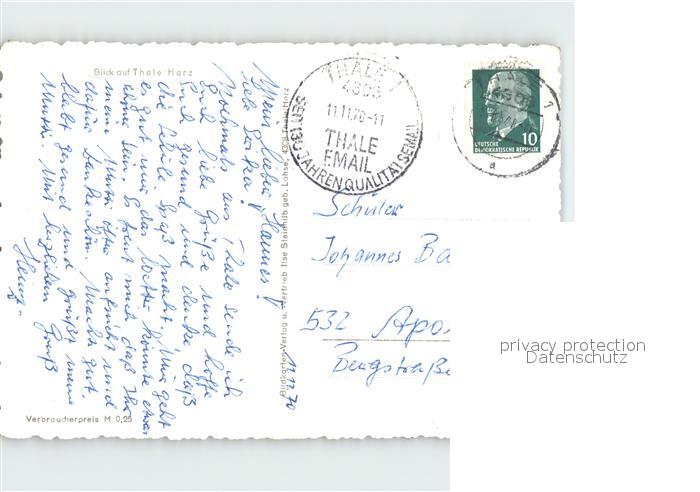 Blick auf Thale Harz
Mein lieber Hannes!
liebe Gerka!
Nochmals aus Thale sende ich
Euch liebe Grüße und hoffe
Euch gesund und denke daß
die Schule Spaß macht. Mir geht
es gut nur das Wetter könnte etwas
sein. Es freut mich daß Ihr
meine Mutti öfter und
dafür Dankeschön. Macht's gut.
bleibt gesund und grüßt meine
Mutti. Mit herzlichem Gruß
Heinz
11.11.70
Bildkarten-Verlag u. Vertrieb Ilse Steinhilb geb. Lohse, 4308 Thale Harz
Verbraucherpreis M 0,25
THALE 1
4308
11.11.70-11
THALE
EMAIL
SEIT 130 JAHREN QUALITÄTSEMAIL
DEUTSCHE
DEMOKRATISCHE REPUBLIK
10
a
Schüler
Johannes Ba
532 Apol
Bergstraße
privacy protection
Datenschutz